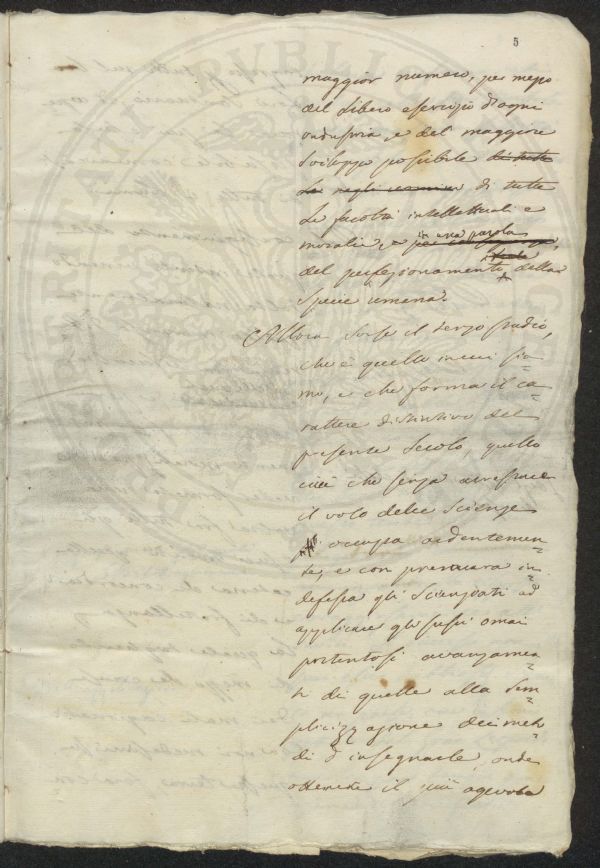 5
maggior numero, per mezzo
del libero esercizio d'ogni
industria, e del maggiore
sviluppo possibile di tutte
le negli di tutte
le facoltà intellettuali e
morali, e in una parola
del perfezionamento della
specie umana.
Allora sorse il terzo stadio,
che è quello in cui sia-
mo, e che forma il ca-
rattere distintivo del
presente secolo, quello
cioè che senza arrestare
il volo delle scienze
occupa ardentemen-
te, e con premura in-
defessa gli scienziati ad
applicare gli stessi omai
portentosi avanzamen-
ti di quelle alla sem-
plicizzazione dei meto-
di d'insegnarle, onde
ottenere il più agevole